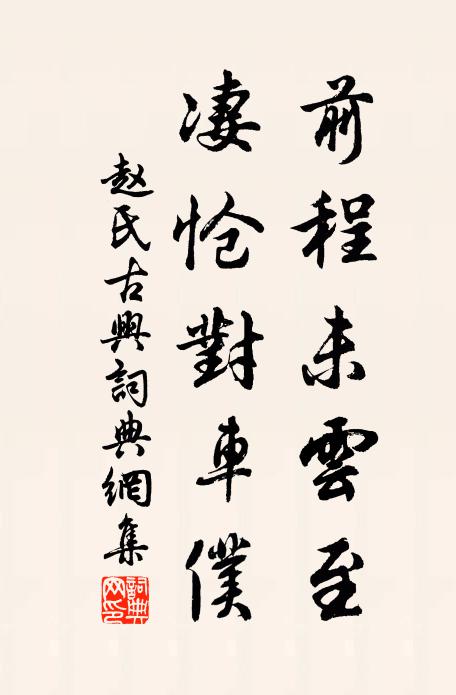 前程未雲至
凄怆對車僕
赵氏古典詞典網集
詞典網印